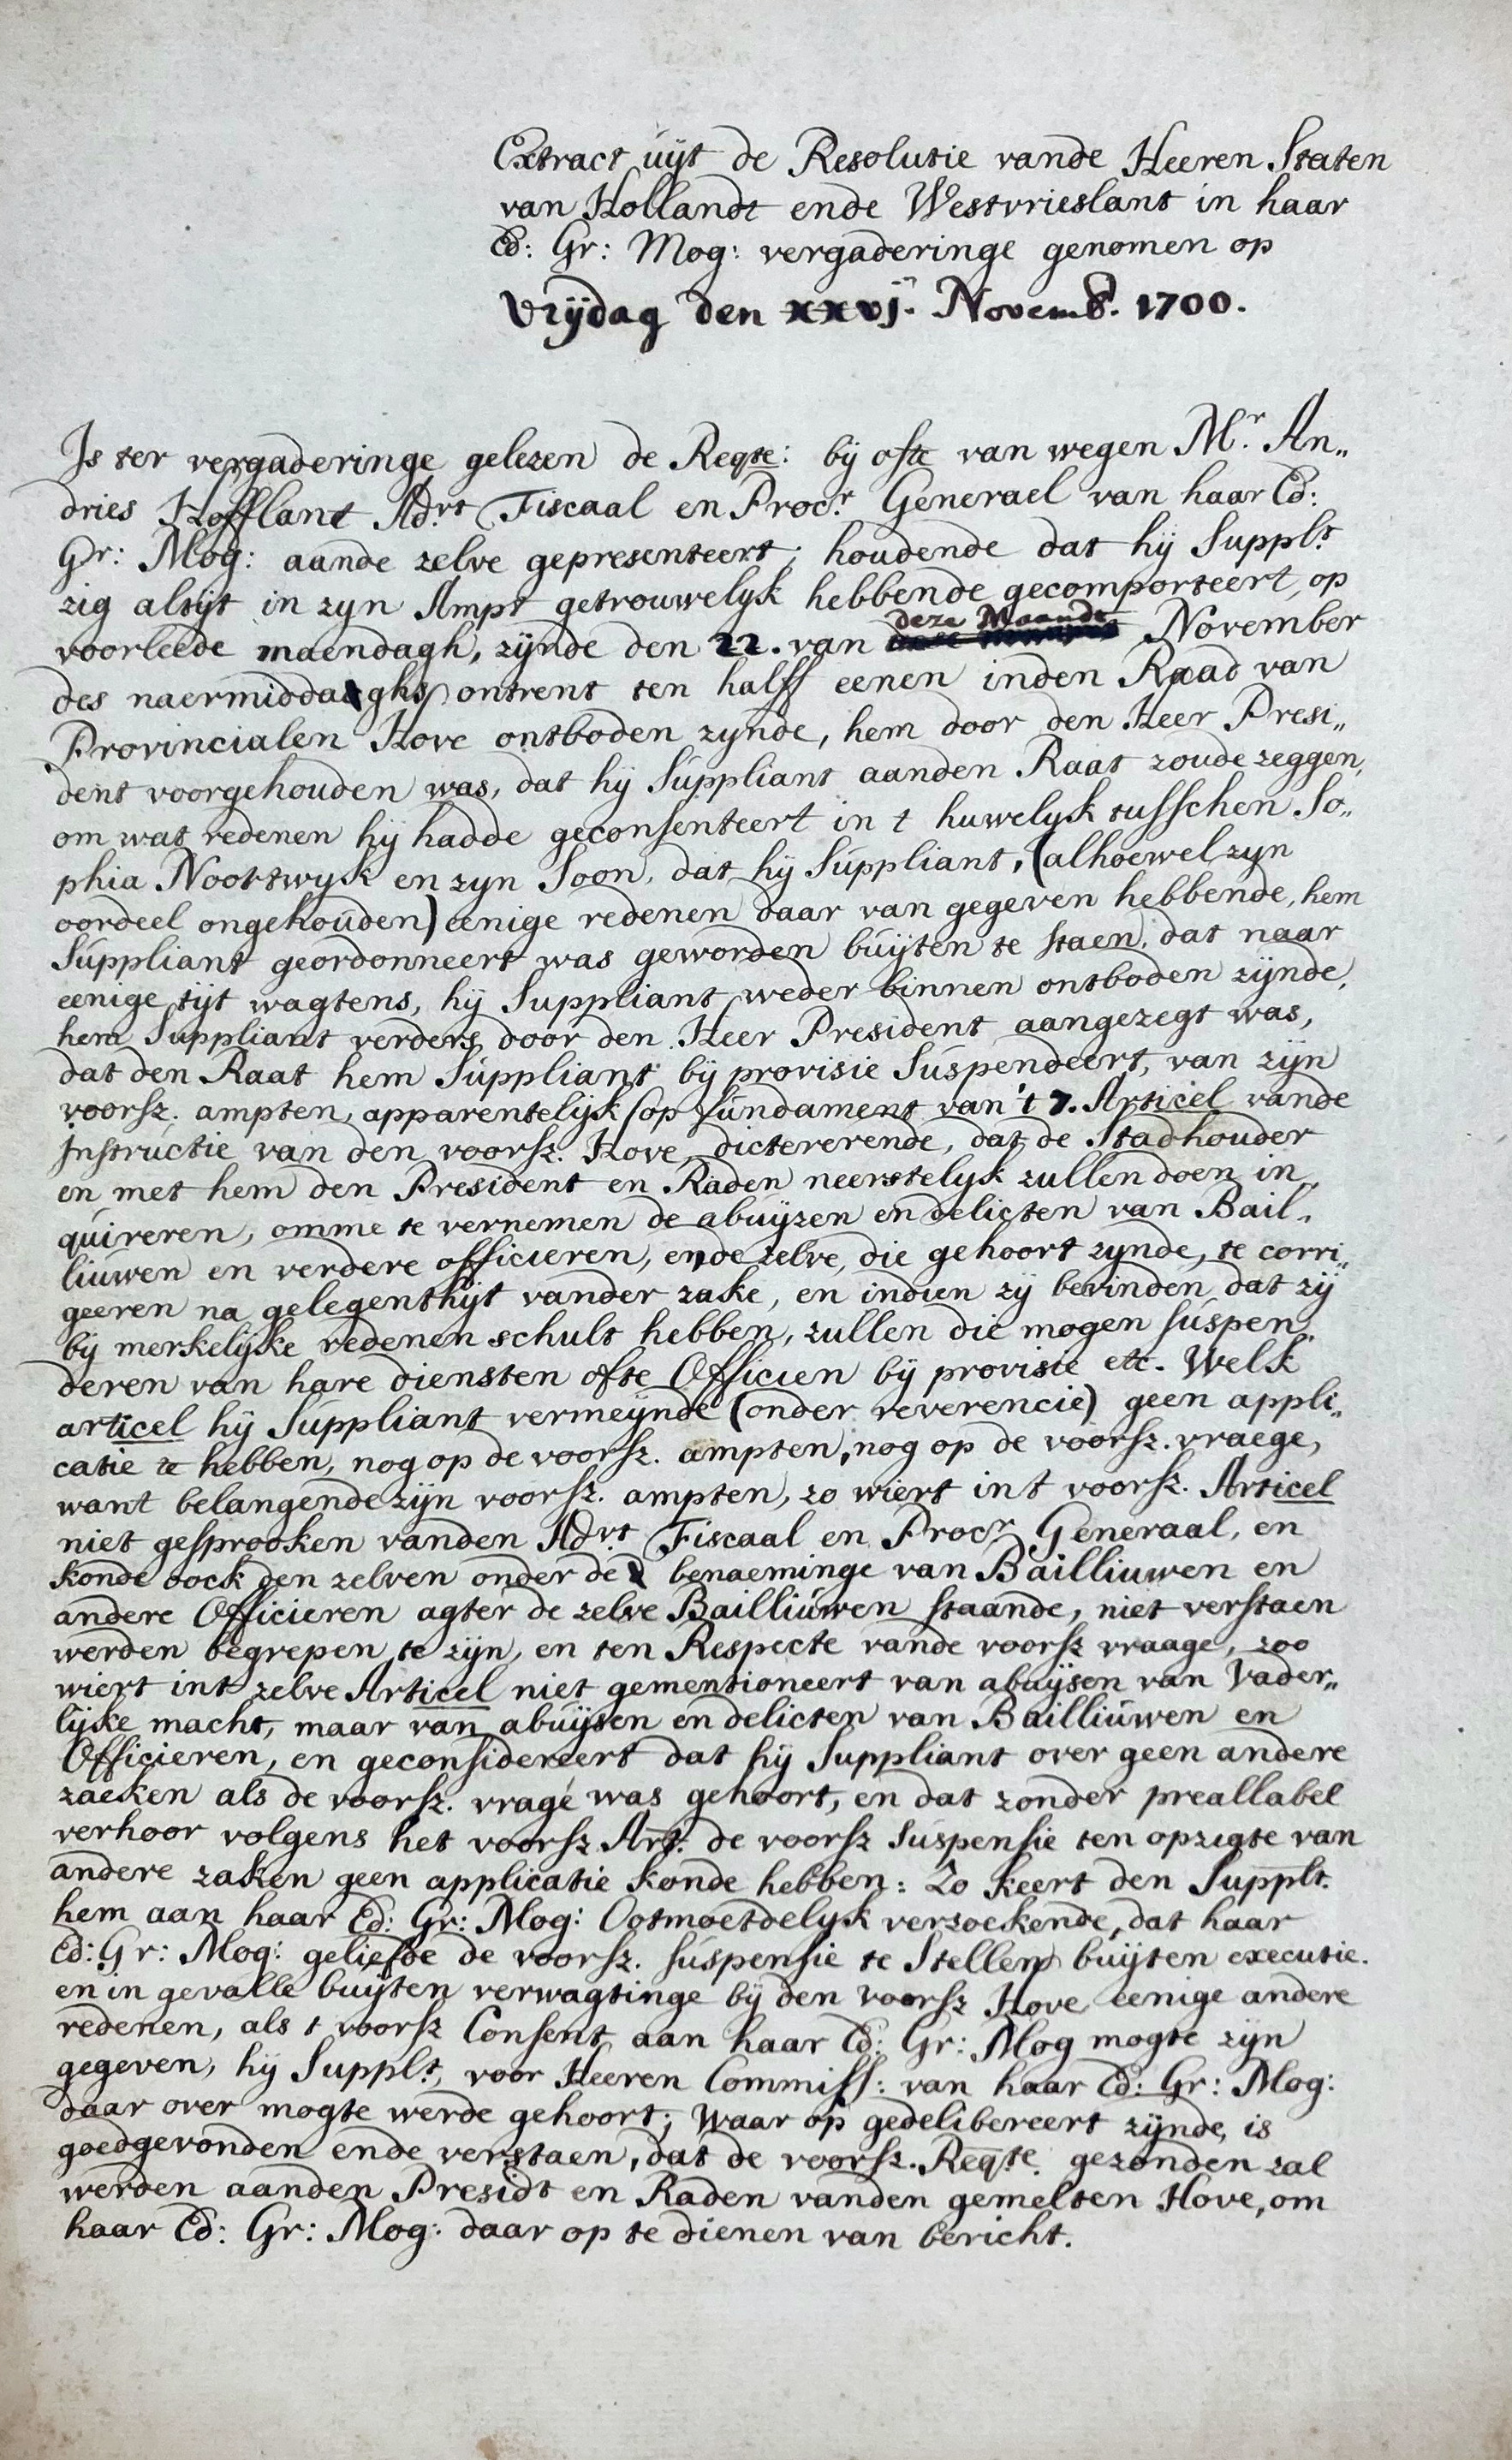 Extract uijt de Resolutie vande Heeren Staten
van Hollandt ende Westvrieslant in haar
Ed: Gr: Mog: vergaderinge genomen op
Vrijdag den xxvj. Novemb. 1700.
Is ter vergaderinge gelezen de Reqte: bij ofte van wegen Mr. An„
dries Hoffland Advt Fiscaal en Procr. Generael van haar Ed:
Gr: Mog: aande zelve gepresenteert; houdende dat hij Supplt.
zig altijt in zyn Ampt getrouwelyk hebbende gecomporteert, op
voorleede maendagh, zijnde den 22. van deze Maandt November
des naermiddaghs ontrent ten halff eenen inden Raad van
Provincialen Hove ontboden zynde, hem door den Heer Presi„
dent voorgehouden was, dat hij Suppliant aanden Raat zoude zeggen,
om wat redenen hij hadde geconsenteert in t huwelyk tusschen So„
phia Nootwyk en zyn Soon, dat hij Suppliant, (alhoewel zyn
oordeel ongehouden) eenige redenen daar van gegeven hebbende, hem
Suppliant geordonneert was geworden buijten te staen, dat naar
eenige tijt wagtens, hij Suppliant weder binnen ontboden zijnde,
hem Suppliant verders door den Heer President aangezegt was,
dat den Raat hem Suppliant bij provisie Suspendeert, van zijn
voorsz. ampten, apparentelijk op fundament van 't 7. Articel vande
Instructie van den voorsz. Hove, dictererende, dat de Stadhouder
en met hem den President en Raden neerstelyk zullen doen in„
quireren, omme te vernemen de abuyzen en delicten van Bail„
liuwen en verdere officieren, ende zelve, die gehoort zynde, te corri„
geeren na gelegenthijt vander zake, en indien zy bevinden dat zij
bij merkelijke redenen schult hebben, zullen die mogen suspen„
deren van hare diensten ofte Officien bij provisie etc. Welk
articel hij Suppliant vermeijnde (onder reverencie) geen appli„
catie te hebben, nog op de voorsz. ampten, nog op de voorsz. vraege,
want belangende zijn voorsz. ampten, zo wiert int voorsz. Articel
niet gesprooken vanden Advt. Fiscaal en Procr Generaal, en
konde oock den zelven onder de benaeminge van Bailliuwen en
andere Officieren agter de zelve Bailliuwen staande, niet verstaen
werden begrepen te zijn, en ten Respecte vande voorsz vraage, zoo
wiert int zelve Articel niet gementioneert van abuijsen van Vader„
lijke macht, maar van abuijsen en delicten van Bailliuwen en
Officieren, en geconsidereert dat hij Suppliant over geen andere
zaeken als de voorsz. vrage was gehoort, en dat zonder preallabel
verhoor volgens het voorsz Art. de voorsz Suspensie ten opzigte van
andere zaken geen applicatie konde hebben: Zo keert den Supplt.
hem aan haar Ed: Gr: Mog: Ootmoetdelyk verzoekende, dat haar
Ed: Gr: Mog: geliefde de voorsz. suspensie te Stellen buijten executie.
en in gevalle buijten verwagtinge bij den voorsz Hove eenige andere
redenen, als t voorsz Consent aan haar Ed: Gr: Mog mogte zijn
gegeven, hij Supplt, voor Heeren Commiss: van haar Ed: Gr: Mog:
daar over mogte werde gehoort; Waar op gedelibereert zijnde, is
goedgevonden ende verstaen, dat de voorsz. Reqte. gezonden zal
werden aanden Presidt en Raden vanden gemelten Hove, om
haar Ed: Gr: Mog: daar op te dienen van bericht.